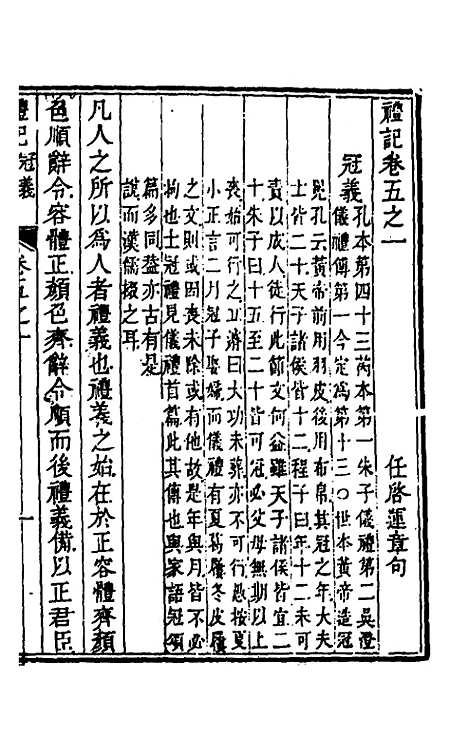 禮記卷五之一
任啓運章句
冠義孔本第四十三芮本第一朱子儀禮第二吳澄
儀禮傳第一今定為第十三○世本黃帝造冠
冕孔云黃帝前用羽皮後用布帛其冠之年大夫
士皆二十天子諸侯皆十二程子曰年十二未可
責以成人徒行此節文何益雖天子諸侯皆宜二
十朱子曰十五至二十皆可冠必父母無期以上
喪始可行之工濟曰大功未葬亦不可行愚按夏
小正言二月冠子娶婦而儀禮有夏葛屨冬皮屨
之文則或因喪未除或有他故是年與月皆不必
拘也士冠禮見儀禮首篇此其傳也與家語冠頌
篇多同蓋亦古有是
說而漢儒掇之耳
凡人之所以為人者禮義也禮義之始在於正容體齊顏
色順辭令容體正顏色齊辭令順而後禮義備以正君臣
禮記 冠義 卷五之一 一